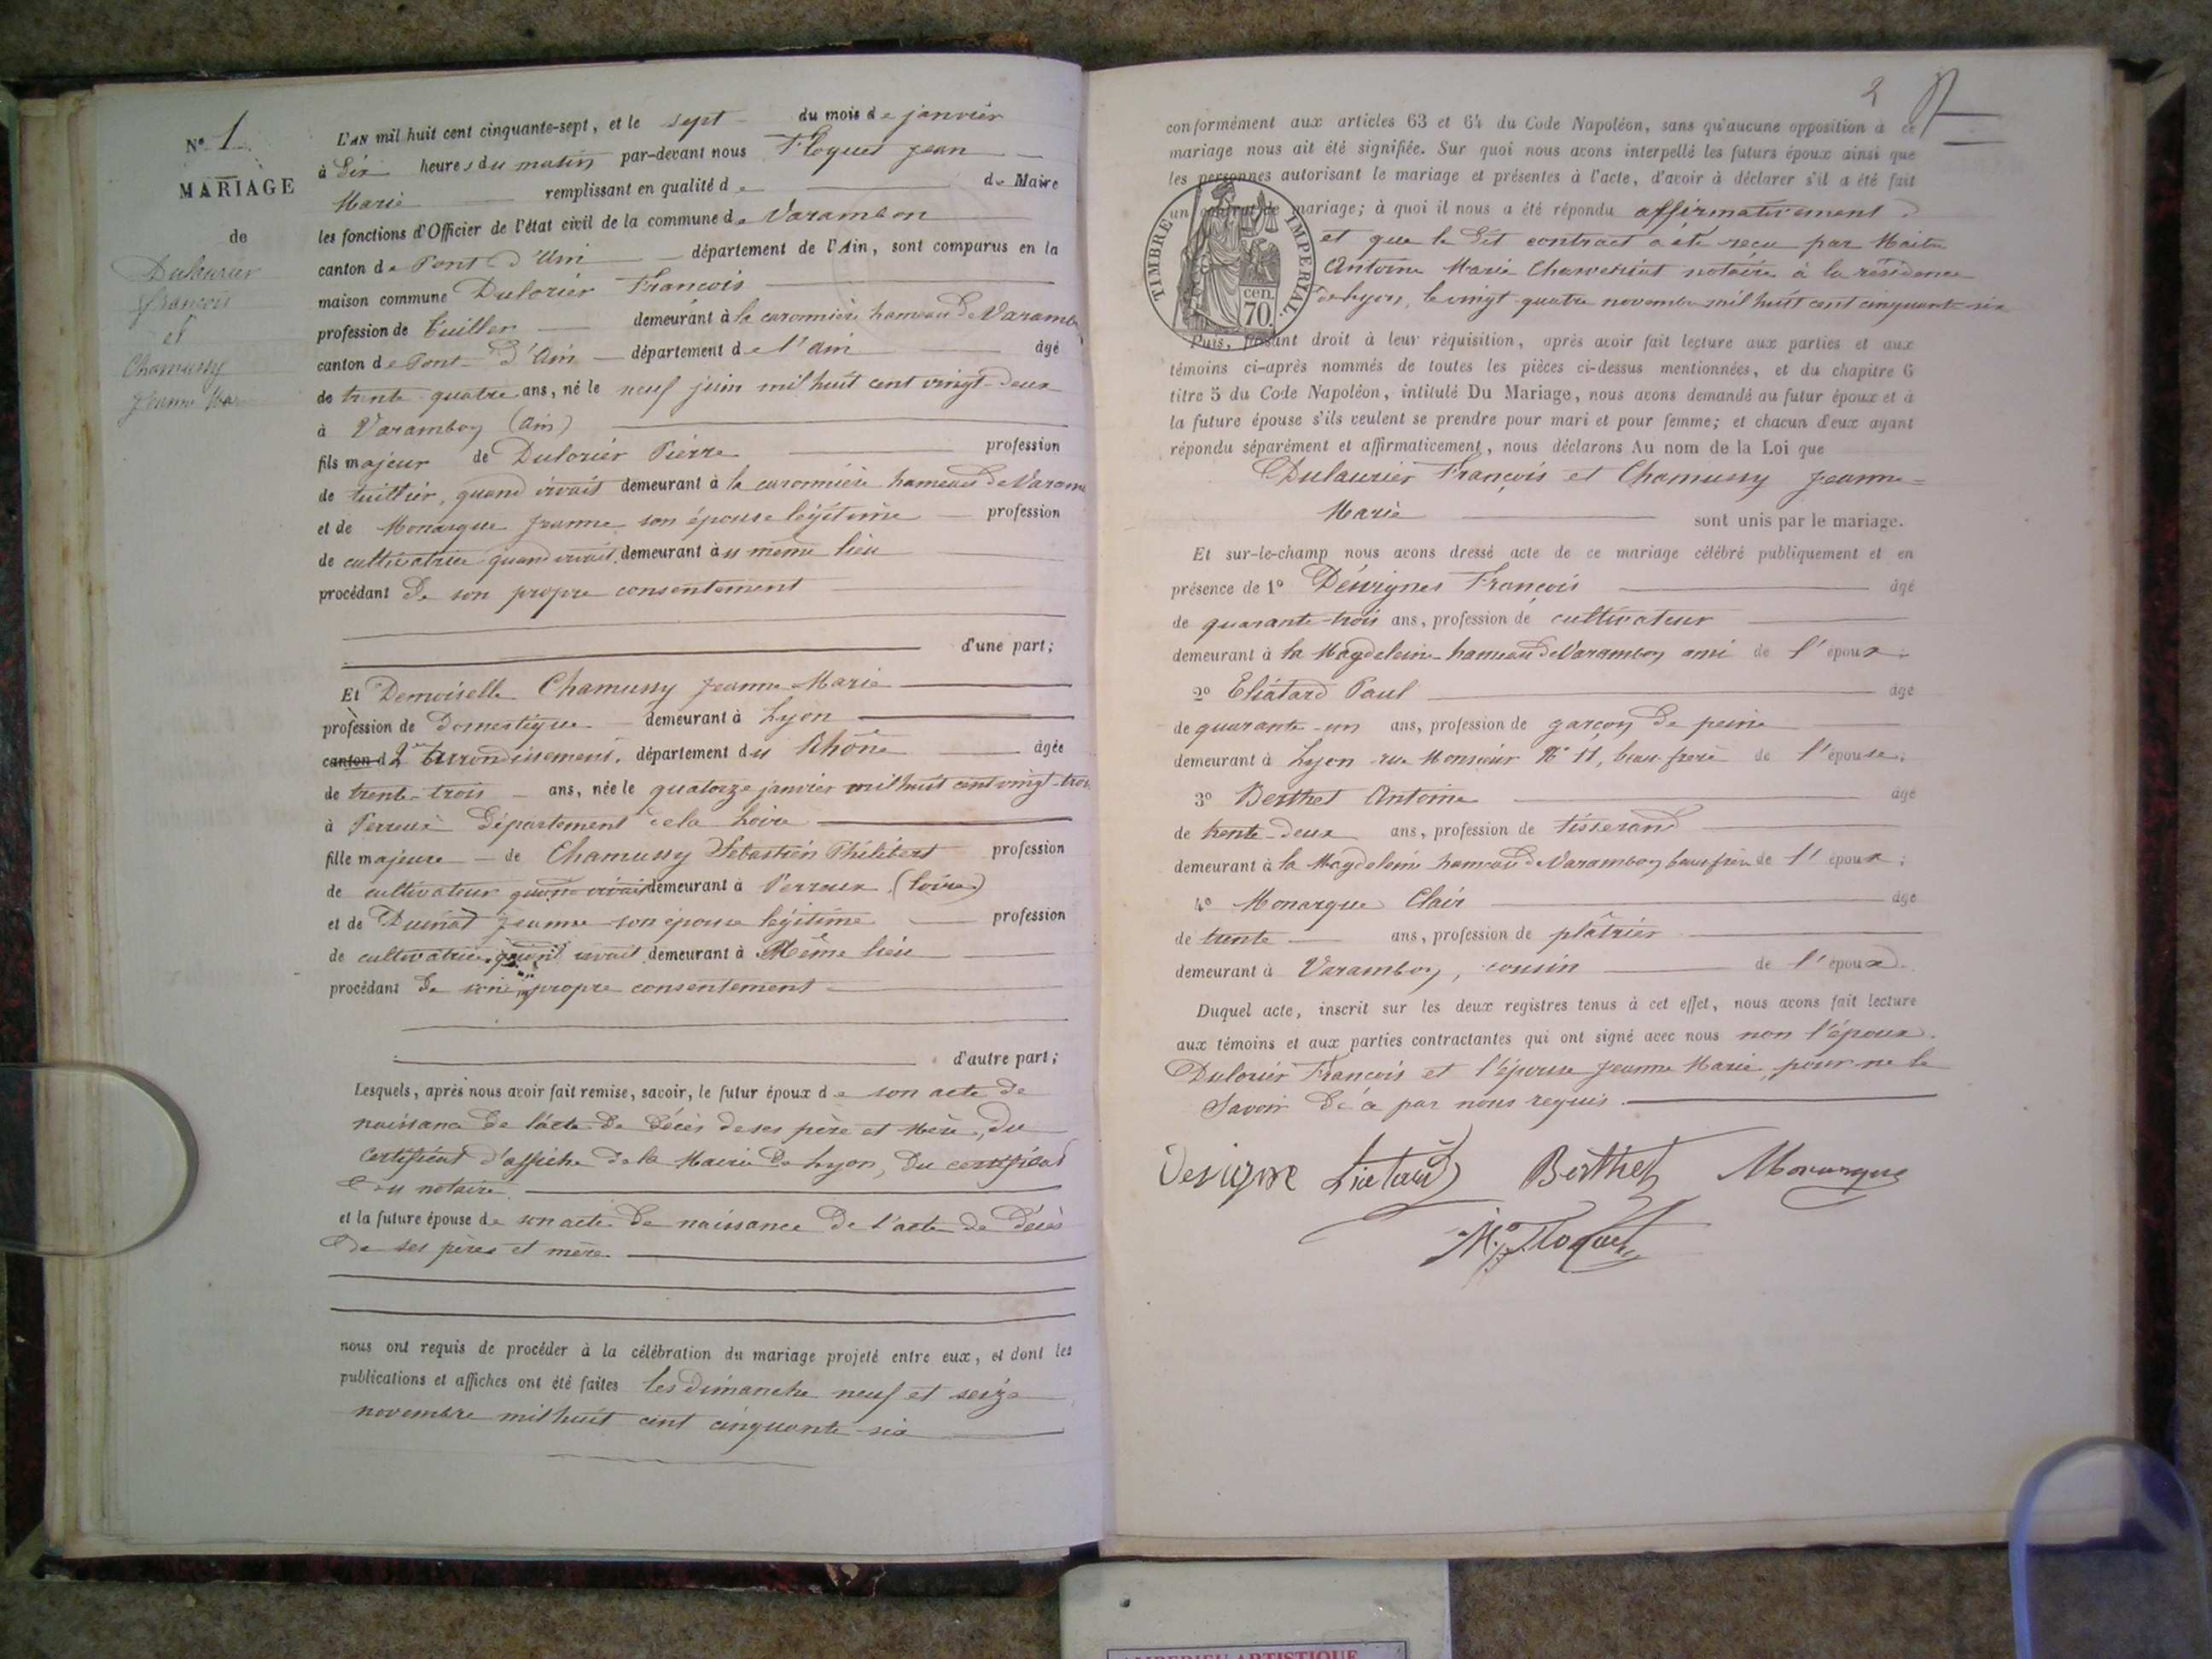 N° 1
MARIAGE
de
Dulaurier
François
et
Chamussy
Jeanne Marie
L'AN mil huit cent cinquante-sept, et le sept du mois de janvier
à dix heures du matin par-devant nous Floquet Jean
Marie remplissant en qualité de de Maire
les fonctions d'Officier de l'état civil de la commune de Varambon
canton de Pont d'Ain département de l'Ain, sont comparus en la
maison commune Dulorier François
profession de tuillier demeurant à la caronnière hameau de Varambon
canton de Pont-d'Ain département de l'ain âgé
de trente-quatre ans, né le neuf juin mil huit cent vingt-deux
à Varambon (Ain)
fils majeur de Dulorier Pierre profession
de tuillier, quand vivait demeurant à la caronnière hameau de Varam
et de Monarque Jeanne son épouse légitime profession
de cultivatrice quand vivait demeurant au même lieu
procédant de son propre consentement
d'une part;
Et Demoiselle Chamussy Jeanne-Marie
profession de domestique demeurant à Lyon
canton d 2e arrondissement, département du Rhône âgée
de trente-trois ans, née le quatorze janvier mil huit cent vingt-trois
à Perreux département de la Loire
fille majeure de Chamussy Sébastien Philibert profession
de cultivateur quand vivait demeurant à Perreux (Loire)
et de Jeanne son épouse légitime profession
de cultivatrice quand vivait demeurant à Même lieu
procédant de son propre consentement
d'autre part;
Lesquels, après nous avoir fait remise, savoir, le futur époux de son acte de
naissance de l'acte de décès de ses père et Mère, du
certificat d'affiche de la Mairie de Lyon, du certificat
du notaire.
et la future épouse de son acte de naissance de l'acte de décès
de ses pères et mère
nous ont requis de procéder à la célébration du mariage projeté entre eux, et dont les
publications et affiches ont été faites les dimanche neuf et seize
novembre mil huit cent cinquante-six
2
conformément aux articles 63 et 64 du Code Napoléon, sans qu'aucune opposition à ce
mariage nous ait été signifiée. Sur quoi nous avons interpellé les futurs époux ainsi que
les personnes autorisant le mariage et présentes à l'acte, d'avoir à déclarer s'il a été fait
un contrat de mariage; à quoi il nous a été répondu affirmativement
et que le dit contract a été reçu par Maître
Antoine Marie notaire à la résidence
de Lyon, le vingt-quatre novembre mil huit cent cinquante-six
TIMBRE IMPERIAL
70 cen.
Puis, faisant droit à leur réquisition, après avoir fait lecture aux parties et aux
témoins ci-après nommés de toutes les pièces ci-dessus mentionnées, et du chapitre 6
titre 5 du Code Napoléon, intitulé Du Mariage, nous avons demandé au futur époux et à
la future épouse s'ils veulent se prendre pour mari et pour femme; et chacun d'eux ayant
répondu séparément et affirmativement, nous déclarons Au nom de la Loi que
Dulaurier François et Chamussy Jeanne-
Marie sont unis par le mariage.
Et sur-le-champ nous avons dressé acte de ce mariage célébré publiquement et en
présence de 1° Dévignes François âgé
de quarante-trois ans, profession de cultivateur
demeurant à la Magdeleine hameau de Varambon ami de l'époux;
2° Eliatard Paul âgé
de quarante-un ans, profession de garçon de peine
demeurant à Lyon rue Monsieur N° 11, beau-frère de l'épouse;
3° Berthet Antoine âgé
de trente-deux ans, profession de tisserand
demeurant à la Magdeleine hameau de Varambon beau frère de l'époux;
4° Monarque Clair âgé
de trente ans, profession de plâtrier
demeurant à Varambon, cousin de l'époux.
Duquel acte, inscrit sur les deux registres tenus à cet effet, nous avons fait lecture
aux témoins et aux parties contractantes qui ont signé avec nous non l'époux
Dulorier François et l'épouse Jeanne Marie, pour ne le
savoir de ce par nous requis.
Devigne Liatard Berthet Monarque
M. J. Floquet
AMBERIEU ARTISTIQUE